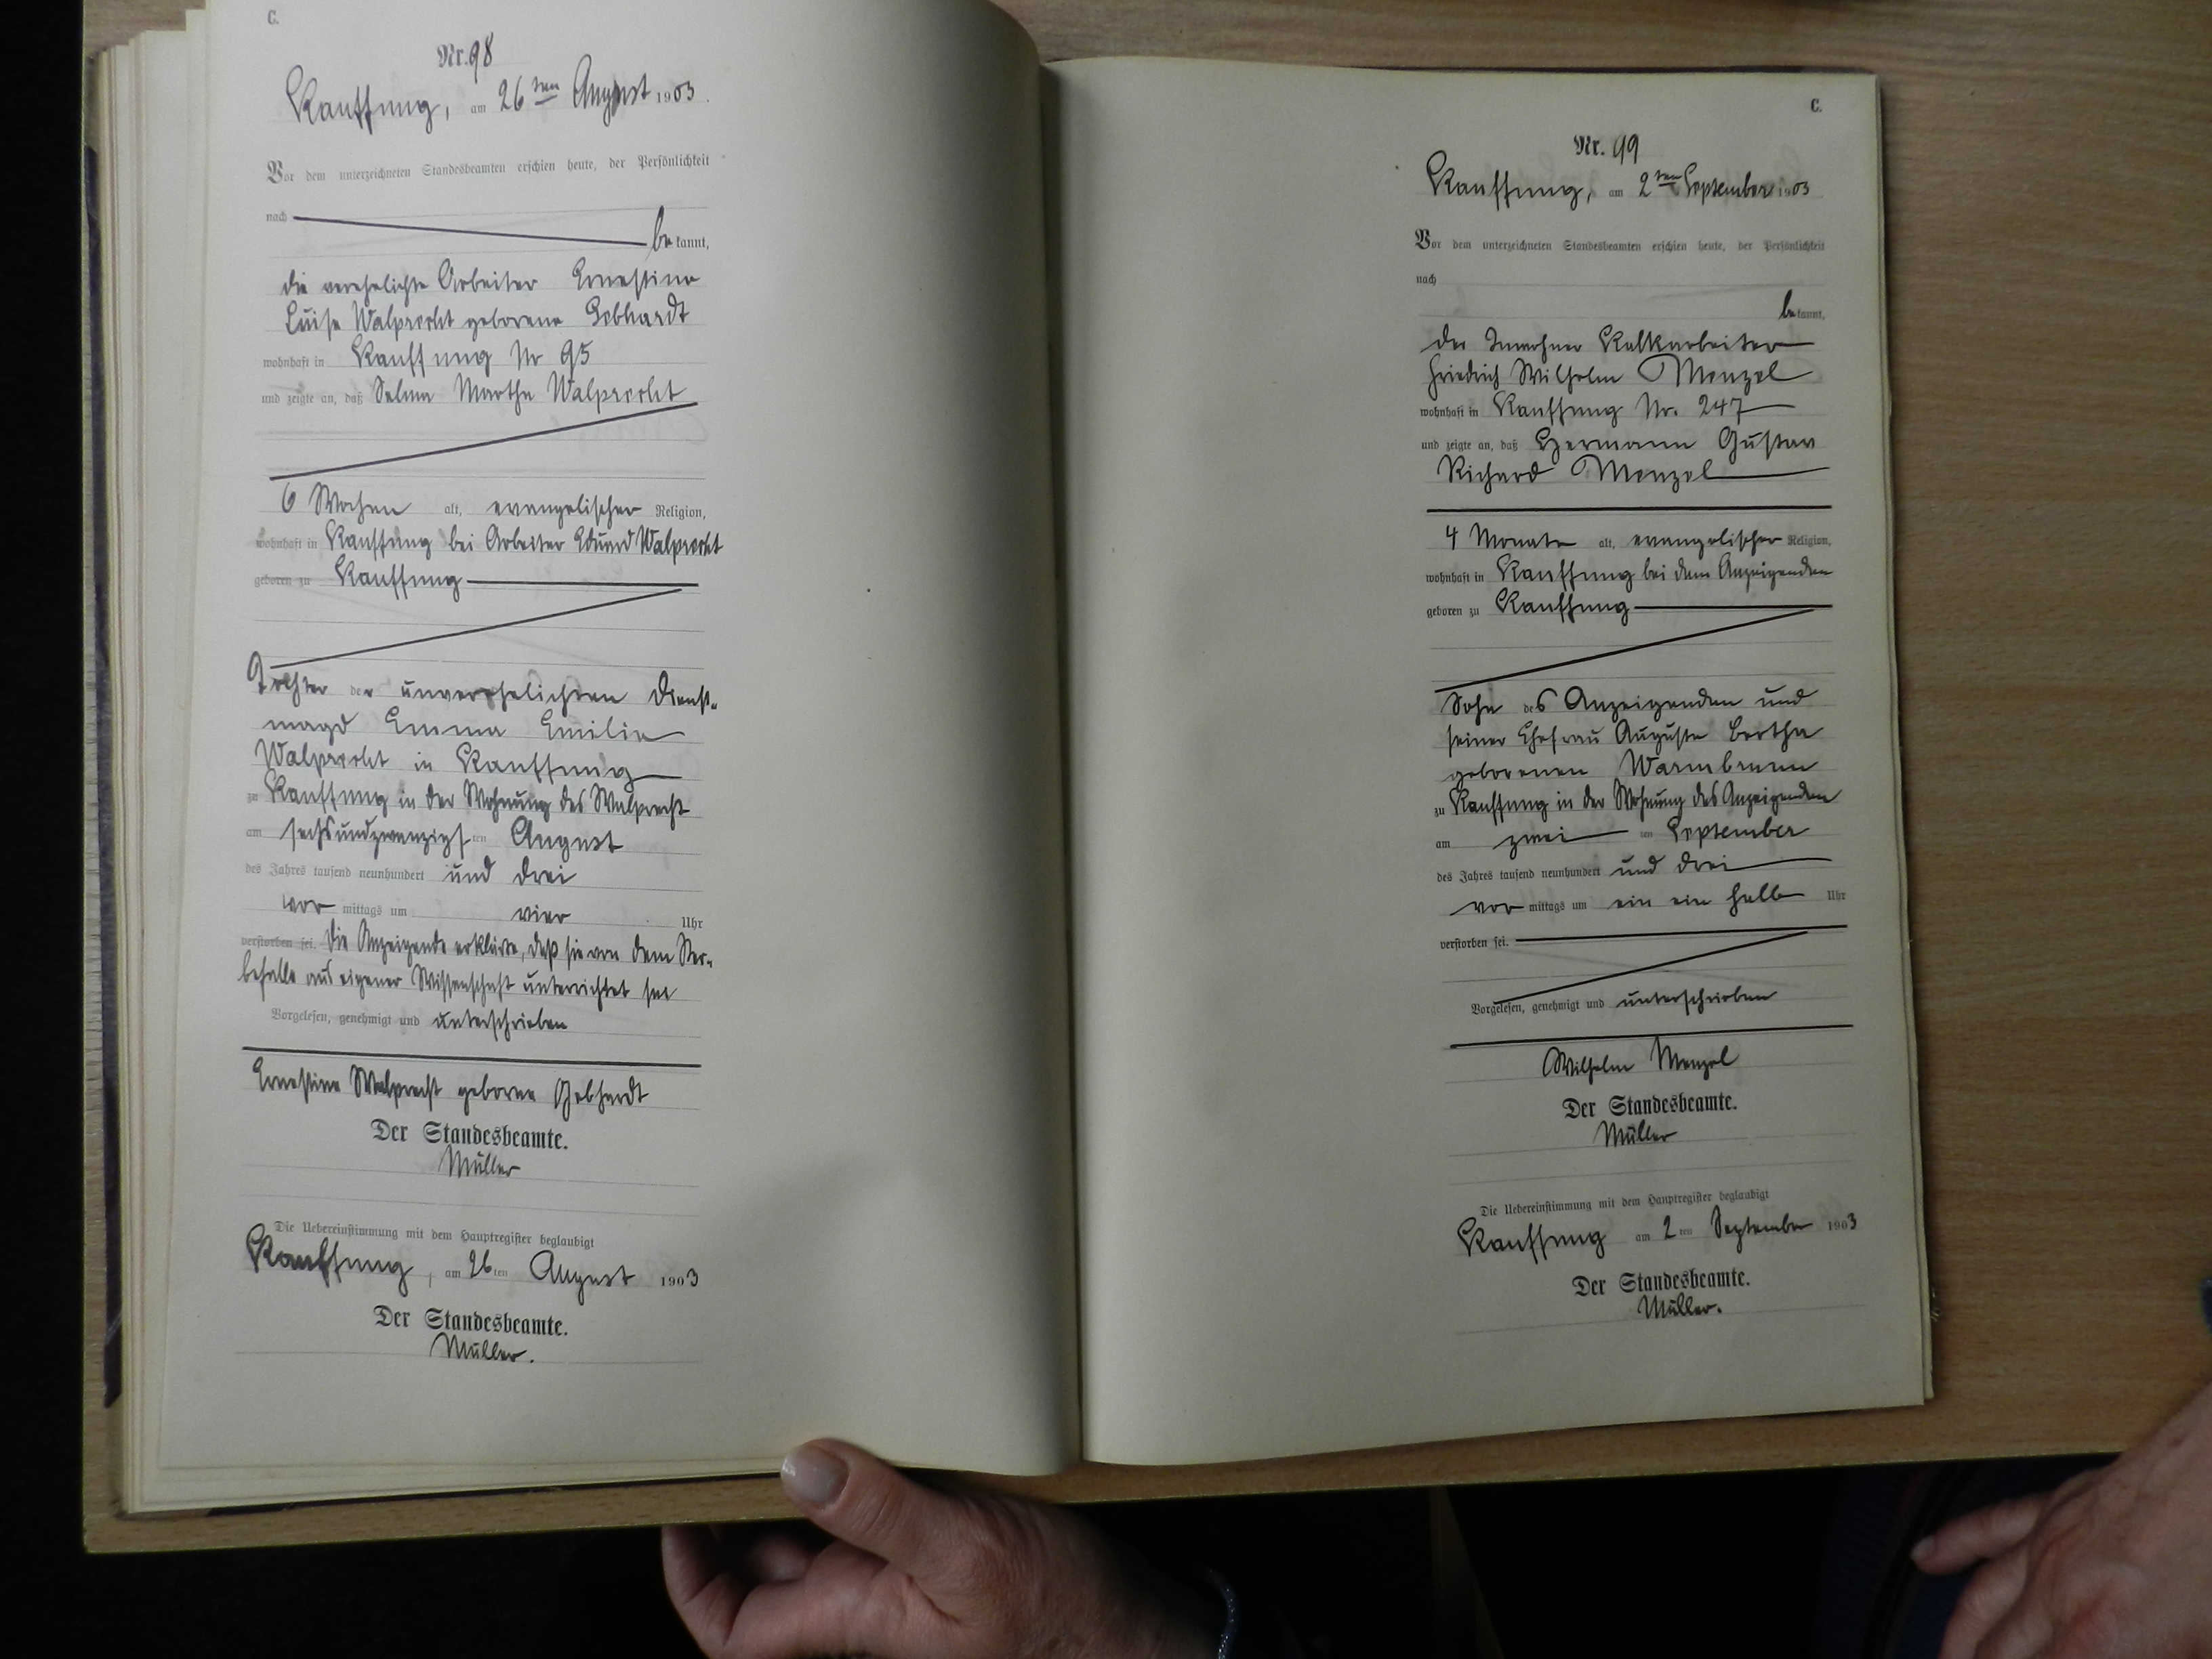 C.
Nr. 98
Kauffung, am 26ten August 1903.
Vor dem unterzeichneten Standesbeamten erschien heute, der Persönlichkeit
nach
be kannt,
die verehelichte Arbeiter Ernestine
Luise Walprecht geborene Gebhardt
wohnhaft in Kauffung Nr 95
und zeigte an, daß Selma Martha Walprecht
6 Wochen alt, evangelischer Religion,
wohnhaft in Kauffung bei Arbeiter Eduard Walprecht
geboren zu Kauffung
Tochter der unverehelichten Dienst-
magd Emma Emilie
Walprecht in Kauffung
zu Kauffung in der Wohnung des Walprecht
am sechsundzwanzigsten August
des Jahres tausend neunhundert und drei
vor mittags um vier Uhr
verstorben sei. Die Anzeigende erklärte, daß sie von dem Ster-
befalle aus eigener Wissenschaft unterrichtet sei
Vorgelesen, genehmigt und unterschrieben
Ernestine Walprecht geborne Gebhardt
Der Standesbeamte.
Müller
Die Uebereinstimmung mit dem Hauptregister beglaubigt
Kauffung, am 26ten August 1903
Der Standesbeamte.
Müller.
C.
Nr. 99
Kauffung, am 2ten September 1903
Vor dem unterzeichneten Standesbeamten erschien heute, der Persönlichkeit
nach
be kannt,
der Inwohner Kalkarbeiter
Friedrich Wilhelm Menzel
wohnhaft in Kauffung Nr. 247
und zeigte an, daß Hermann Gustav
Richard Menzel
4 Monate alt, evangelischer Religion,
wohnhaft in Kauffung bei dem Anzeigenden
geboren zu Kauffung
Sohn des Anzeigenden und
seiner Ehefrau Auguste Bertha
geborenen Warmbrunn
zu Kauffung in der Wohnung des Anzeigenden
am zwei ten September
des Jahres tausend neunhundert und drei
vor mittags um ein ein halb Uhr
verstorben sei.
Vorgelesen, genehmigt und unterschrieben
Wilhelm Menzel
Der Standesbeamte.
Müller
Die Uebereinstimmung mit dem Hauptregister beglaubigt
Kauffung am 2ten September 1903
Der Standesbeamte.
Müller.